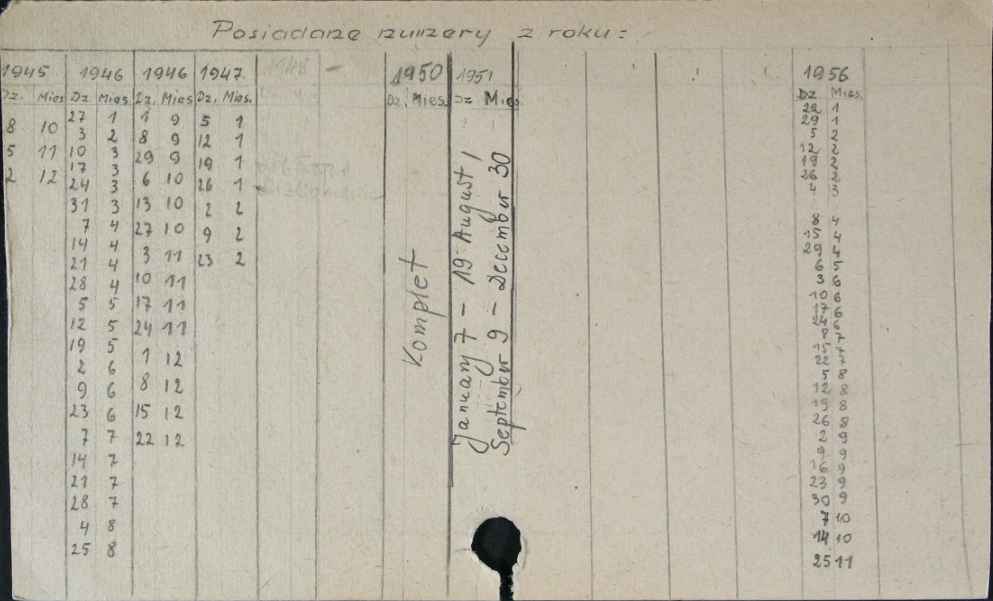 Posiadane numery z roku:
1945 1946 1946 1947 1950 1951 1956
Dz. Mies Dz Mies. Dz. Mies Dz. Mies. Dz. Mies. Dz Mies. Dz Mies.
8 10
5 11
2 12
27 1
3 2
10 3
17 3
24 3
31 3
7 4
14 4
21 4
28 4
5 5
12 5
19 5
2 6
9 6
23 6
7 7
14 7
21 7
28 7
4 8
25 8
1 9
8 9
29 9
6 10
13 10
27 10
3 11
10 11
17 11
24 11
1 12
8 12
15 12
22 12
5 1
12 1
19 1
26 1
2 2
9 2
23 2
Komplet
January 7 - 19 August /
September 9 - December 30
22 1
29 1
5 2
12 2
19 2
26 2
4 3
8 4
15 4
29 4
6 5
3 6
10 6
17 6
24 6
8 7
15 7
22 7
5 8
12 8
19 8
26 8
2 9
9 9
16 9
23 9
30 9
7 10
14 10
25 11